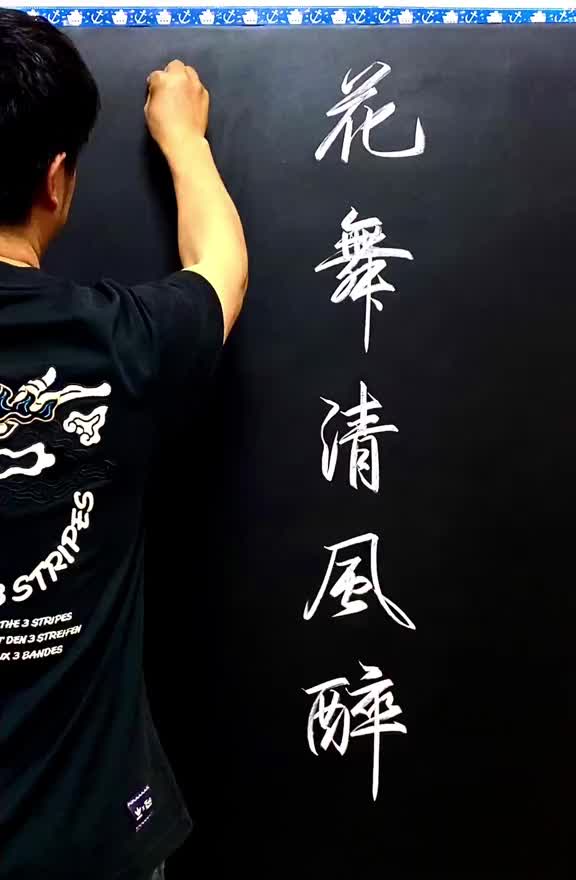 花舞清風醉
3 STRIPES
THE 3 STRIPES
T DEN 3 STREIFEN
UX 3 BANDES